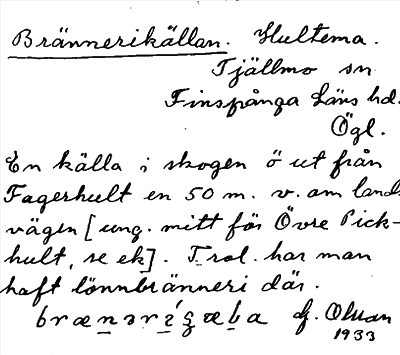 Brännerikällan. Hultema.
Tjällmo sn
Finspånga Läns hd.
Ögl.
En källa i skogen ö ut från
Fagerhult en 50 m. v. om lands
vägen [ung. mitt för Övre Pick-
hult, se ek]. Trol. har man
haft lönnbränneri där.
1933